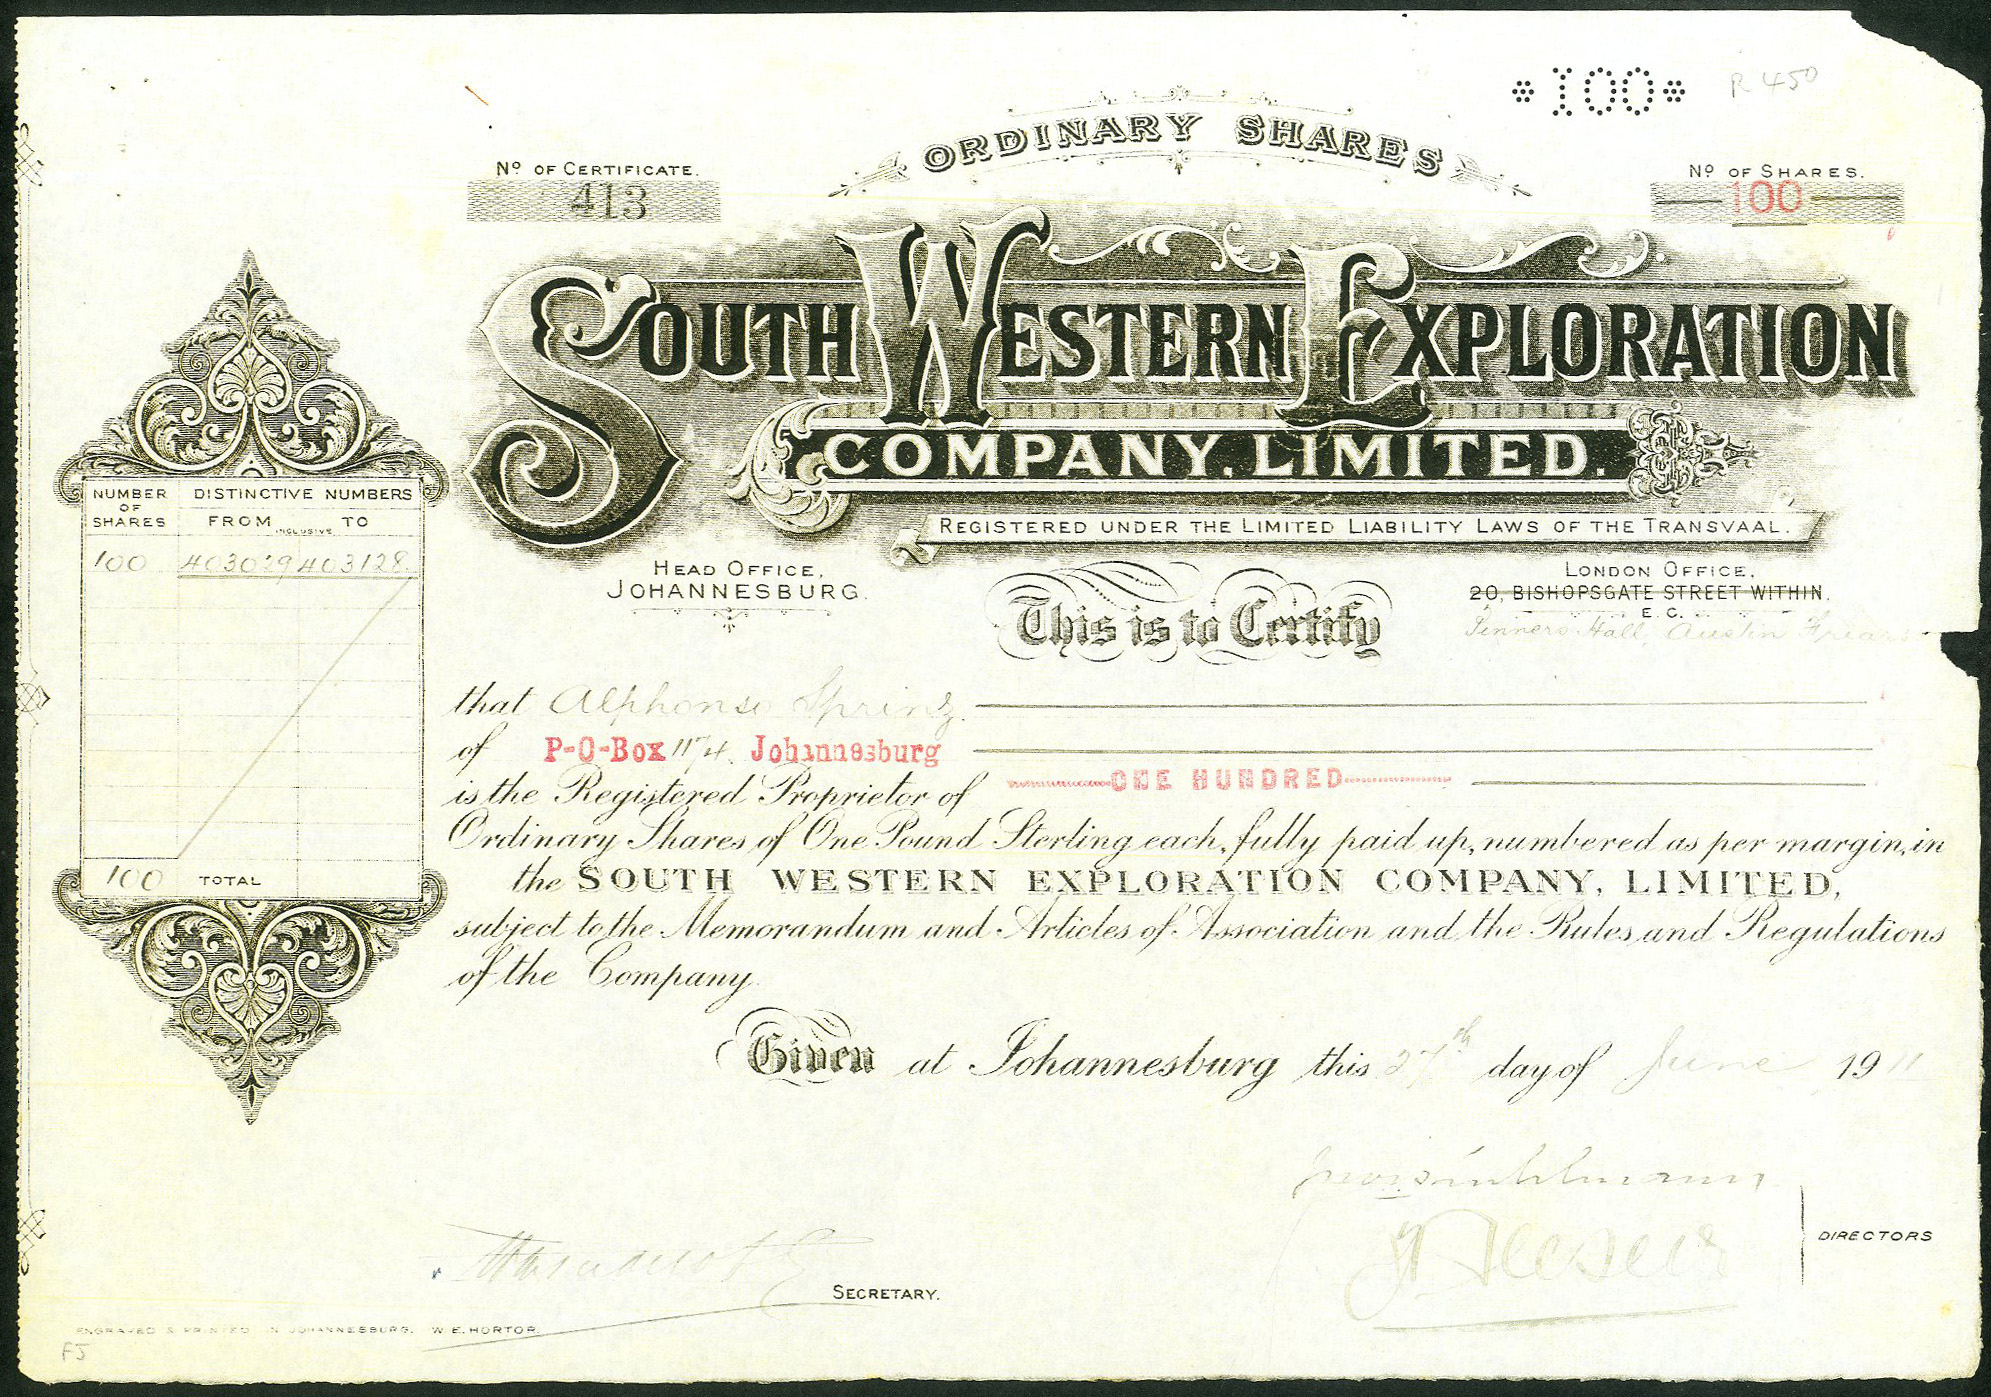 *100*
R 450
ORDINARY SHARES
No OF CERTIFICATE.
413
No OF SHARES.
100
SOUTH WESTERN EXPLORATION
COMPANY, LIMITED.
REGISTERED UNDER THE LIMITED LIABILITY LAWS OF THE TRANSVAAL.
HEAD OFFICE,
JOHANNESBURG.
LONDON OFFICE,
20, BISHOPSGATE STREET WITHIN.
E.C.
Pinners Hall, Austin Friars
NUMBER OF SHARES
DISTINCTIVE NUMBERS
FROM INCLUSIVE TO
100 403029 403128
100 TOTAL
This is to Certify
that Alphonse Sprinz
of P-O-Box 1174. Johannesburg
is the Registered Proprietor of ONE HUNDRED
Ordinary Shares of One Pound Sterling each, fully paid up, numbered as per margin, in
the SOUTH WESTERN EXPLORATION COMPANY, LIMITED,
subject to the Memorandum and Articles of Association and the Rules and Regulations
of the Company.
Given at Johannesburg this 27th day of June 1911
DIRECTORS
SECRETARY.
ENGRAVED & PRINTED IN JOHANNESBURG. W.E. HORTOR.
FJ